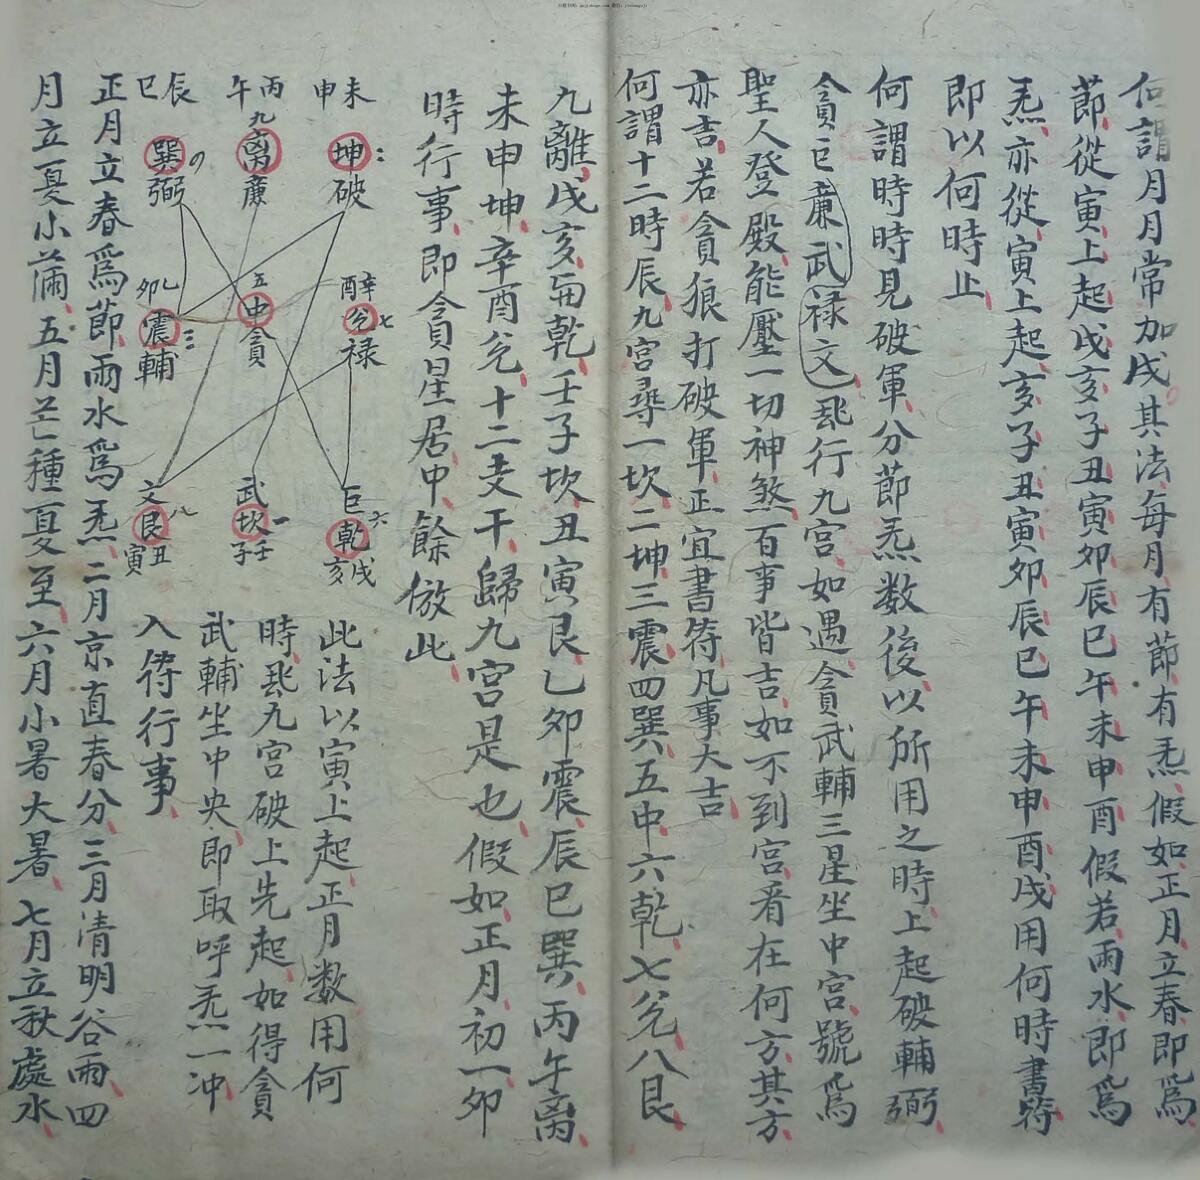 何謂月月常加戌其法每月有節有炁假如正月立春即爲
節從寅上起戌亥子丑寅卯辰巳午未申酉假若雨水即爲
炁亦從寅上起亥子丑寅卯辰巳午未申酉戌用何時書符
即以何時止
何謂時時見破軍分節炁数後以所用之時上起破輔弼
貪巨亷武禄文乱行九宫如遇貪武輔三星坐中宫號爲
聖人登殿能壓一切神煞百事皆吉如不到宫看在何方其方
亦吉若貪狼打破軍正宜書符凡事大吉
何謂十二時辰九宫尋一坎二坤三震四巽五中六乾七兊八艮
九離戌亥同乾壬子坎丑寅艮乙卯震辰巳巽丙午离
未申坤辛酉兊十二支干歸九宫是也假如正月初一卯
時行事即令貪星居中餘倣此
未申
坤
破
丙午
九
离
亷
辰巳
巽
弼
辛酉
兊七
禄
五
中
貪
乙卯
震
輔
巨六
乾
戌亥
武一
坎
壬子
文八
艮
丑寅
此法以寅上起正月数用何
時乱九宫破上先起如得貪
武輔坐中央即取呼炁一冲
入符行事
正月立春爲節雨水爲炁二月京直春分三月清明谷雨四
月立夏小滿五月芒種夏至六月小暑大暑七月立秋處水